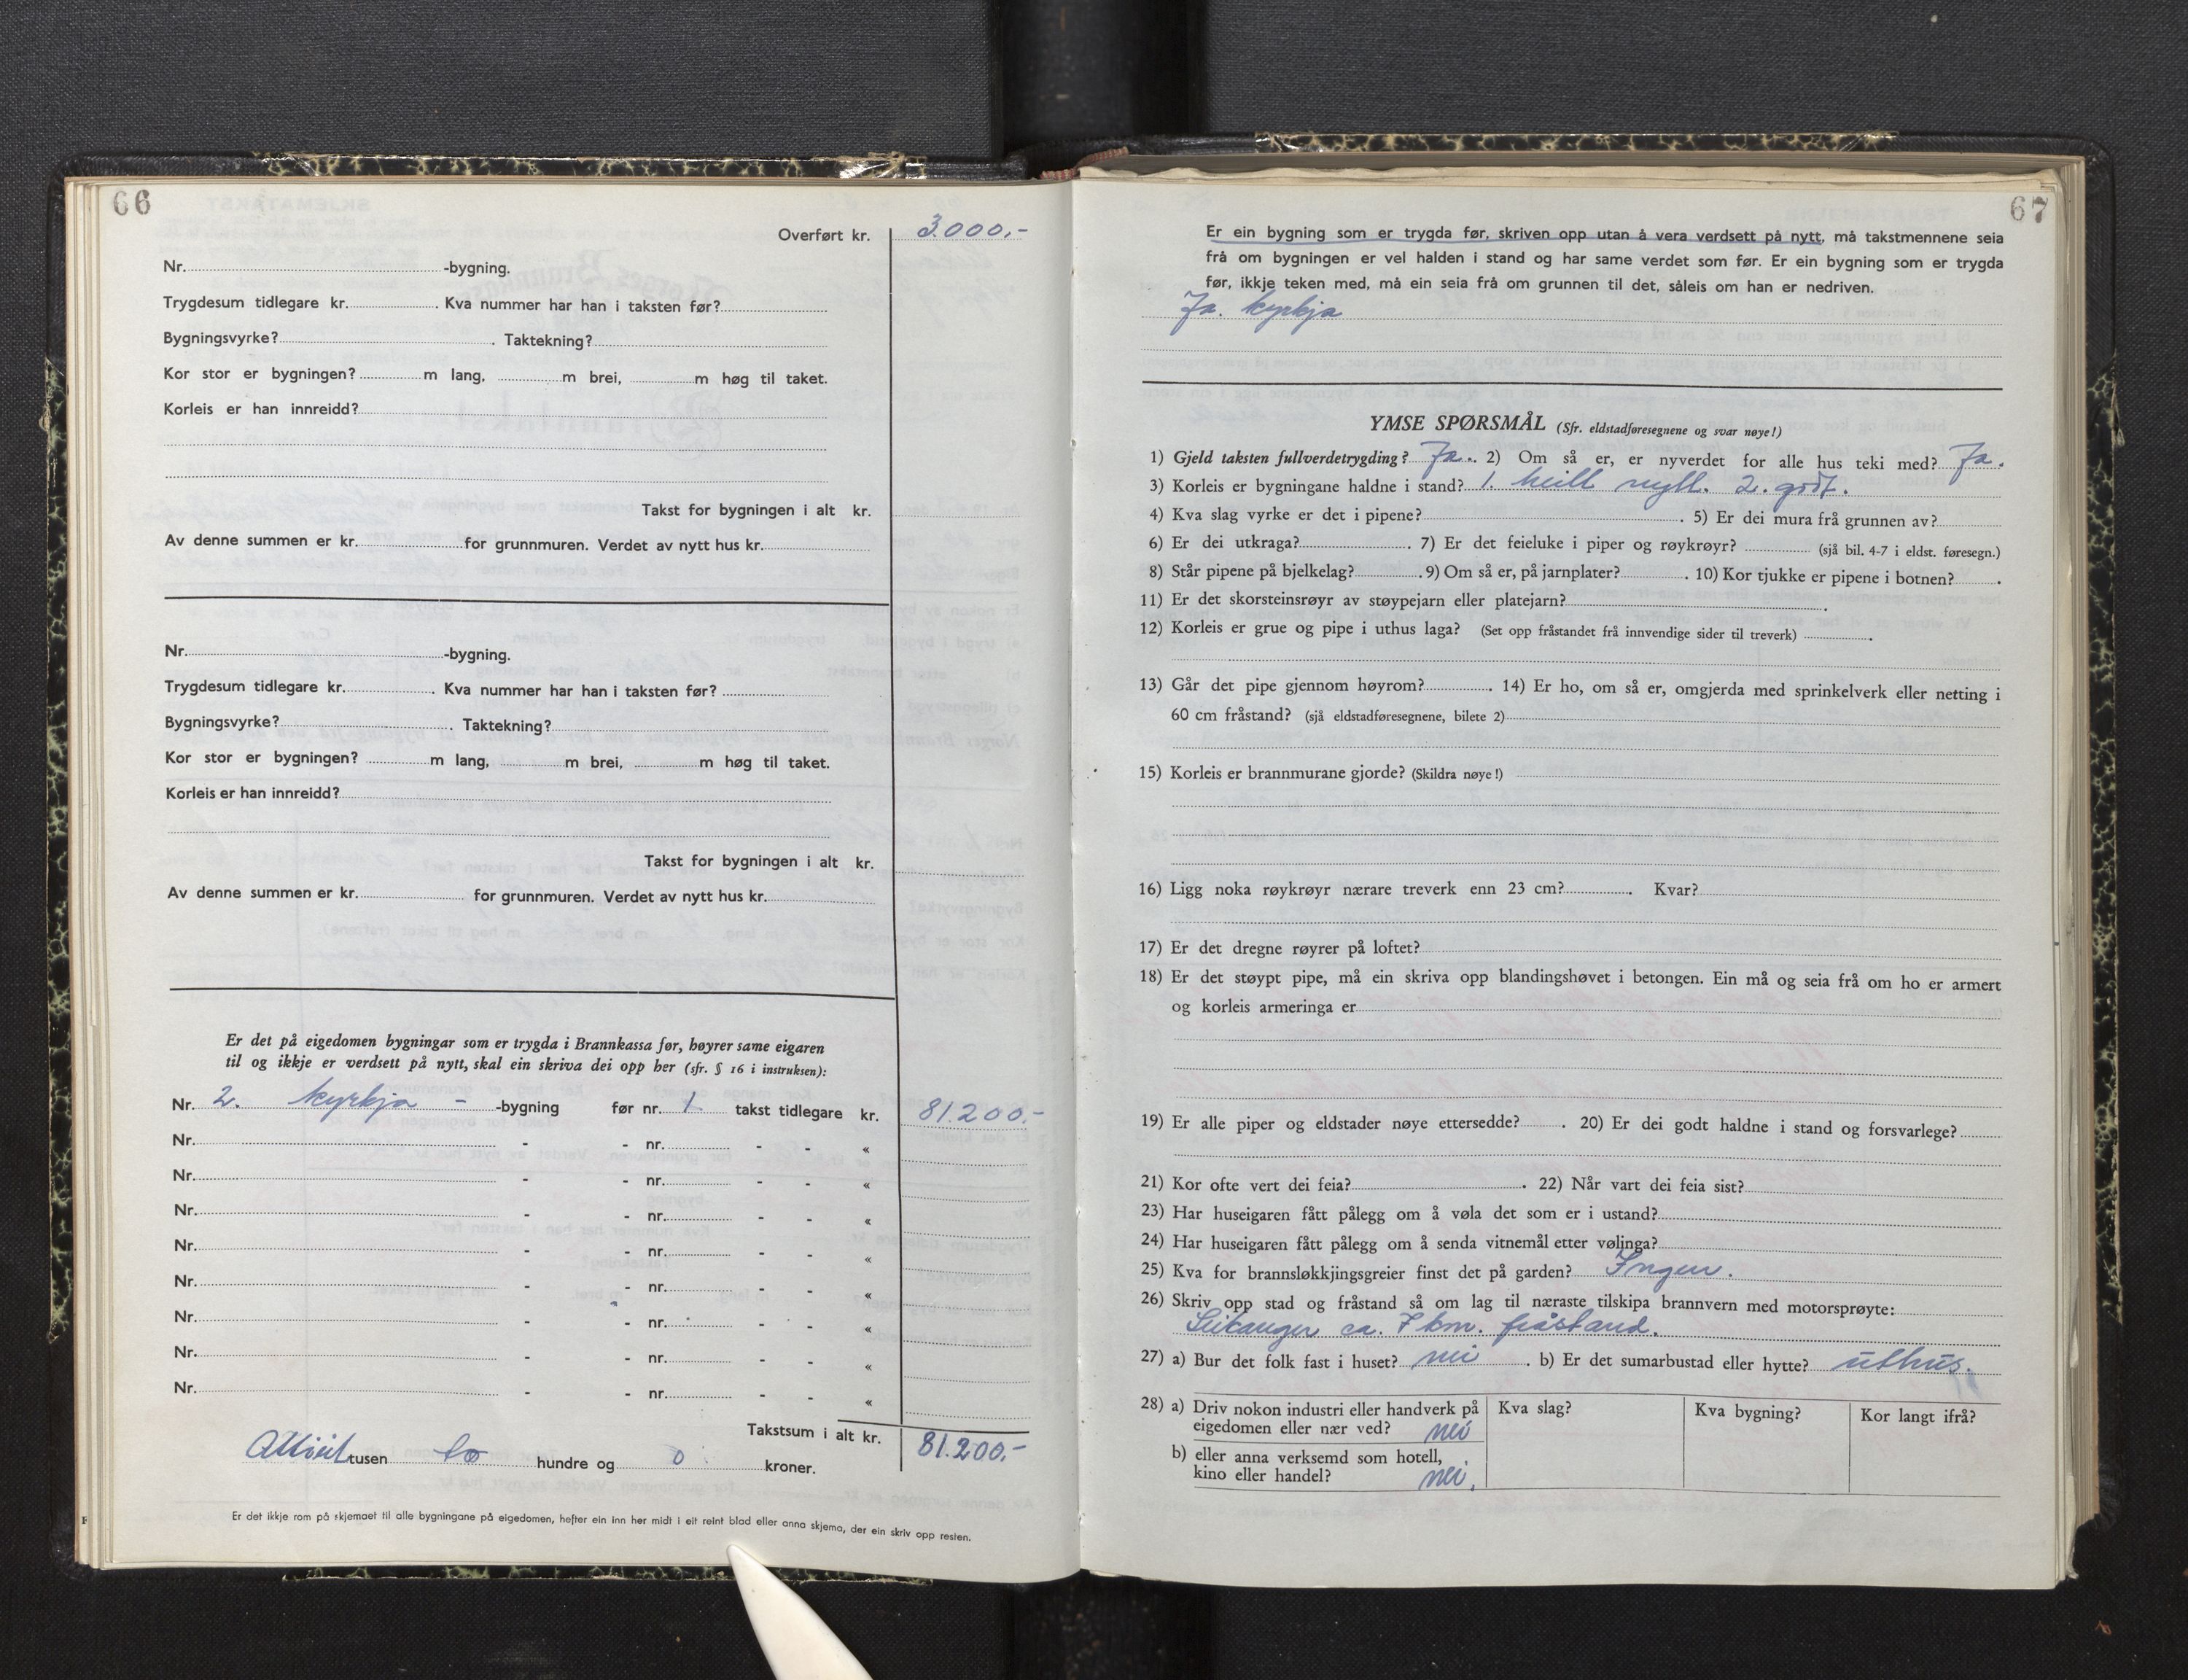 66
Overført kr. 3.000,-
Nr. -bygning.
Trygdesum tidlegare kr. . Kva nummer har han i taksten før?
Bygningsvyrke? . Taktekning?
Kor stor er bygningen? m lang, m brei, m høg til taket.
Korleis er han innreidd?
Takst for bygningen i alt kr.
Av denne summen er kr. for grunnmuren. Verdet av nytt hus kr.
Nr. -bygning.
Trygdesum tidlegare kr. . Kva nummer har han i taksten før?
Bygningsvyrke? . Taktekning?
Kor stor er bygningen? m lang, m brei, m høg til taket.
Korleis er han innreidd?
Takst for bygningen i alt kr.
Av denne summen er kr. for grunnmuren. Verdet av nytt hus kr.
Er det på eigedomen bygningar som er trygda i Brannkassa før, høyrer same eigaren
til og ikkje er verdsett på nytt, skal ein skriva dei opp her (sfr. § 16 i instruksen):
Nr. 2. kyrkja - -bygning før nr. 1 takst tidlegare kr. 81.200.-
Nr. - - nr. - - «
Nr. - - nr. - - «
Nr. - - nr. - - «
Nr. - - nr. - - «
Nr. - - nr. - - «
Nr. - - nr. - - «
Nr. - - nr. - - «
Nr. - - nr. - - «
Takstsum i alt kr. 81.200.-
tusen to hundre og 0 kroner.
Er det ikkje rom på skjemaet til alle bygningane på eigedomen, hefter ein inn her midt i eit reint blad eller anna skjema, der ein skriv opp resten.
67
Er ein bygning som er trygda før, skriven opp utan å vera verdsett på nytt, må takstmennene seia
frå om bygningen er vel halden i stand og har same verdet som før. Er ein bygning som er trygda
før, ikkje teken med, må ein seia frå om grunnen til det, såleis om han er nedriven.
Ja. kyrkja
YMSE SPØRSMÅL (Sfr. eldstadføresegnene og svar nøye!)
1) Gjeld taksten fullverdetrygding? Ja. . 2) Om så er, er nyverdet for alle hus teki med? Ja.
3) Korleis er bygningane haldne i stand? 1. heilt nytt. 2. godt.
4) Kva slag vyrke er det i pipene? . 5) Er dei mura frå grunnen av?
6) Er dei utkraga? . 7) Er det feieluke i piper og røykrøyr? (sjå bil. 4-7 i eldst. føresegn.)
8) Står pipene på bjelkelag? . 9) Om så er, på jarnplater? . 10) Kor tjukke er pipene i botnen? .
11) Er det skorsteinsrøyr av støypejarn eller platejarn? .
12) Korleis er grue og pipe i uthus laga? (Set opp fråstandet frå innvendige sider til treverk) .
13) Går det pipe gjennom høyrom? . 14) Er ho, om så er, omgjerda med sprinkelverk eller netting i
60 cm fråstand? (sjå eldstadføresegnene, bilete 2)
15) Korleis er brannmurane gjorde? (Skildra nøye!)
16) Ligg noka røykrøyr nærare treverk enn 23 cm? . Kvar?
17) Er det dregne røyrer på loftet?
18) Er det støypt pipe, må ein skriva opp blandingshøvet i betongen. Ein må og seia frå om ho er armert
og korleis armeringa er
19) Er alle piper og eldstader nøye ettersedde? . 20) Er dei godt haldne i stand og forsvarlege?
21) Kor ofte vert dei feia? . 22) Når vart dei feia sist?
23) Har huseigaren fått pålegg om å vøla det som er i ustand?
24) Har huseigaren fått pålegg om å senda vitnemål etter vølinga?
25) Kva for brannsløkkjingsgreier finst det på garden? Ingen.
26) Skriv opp stad og fråstand så om lag til næraste tilskipa brannvern med motorsprøyte:
Leikanger ca. 7 km. fråstand.
27) a) Bur det folk fast i huset? nei . b) Er det sumarbustad eller hytte? uthus.
28) a) Driv nokon industri eller handverk på Kva slag? Kva bygning? Kor langt ifrå?
eigedomen eller nær ved? nei
b) eller anna verksemd som hotell,
kino eller handel? nei.